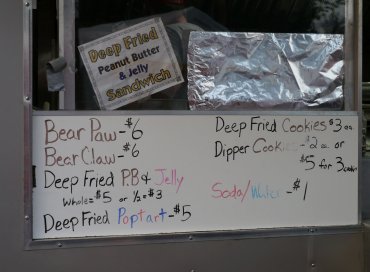 Deep Fried
Peanut Butter
& Jelly
Sandwich
Bear Paw - $6
Bear Claw - $6
Deep Fried P.B & Jelly
Whole = $5 or 1/2 = $3
Deep Fried Poptart - $5
Deep Fried Cookies $3 ea
Dipper Cookies - $2 ea. or
$5 for 3
Soda/Water - $1